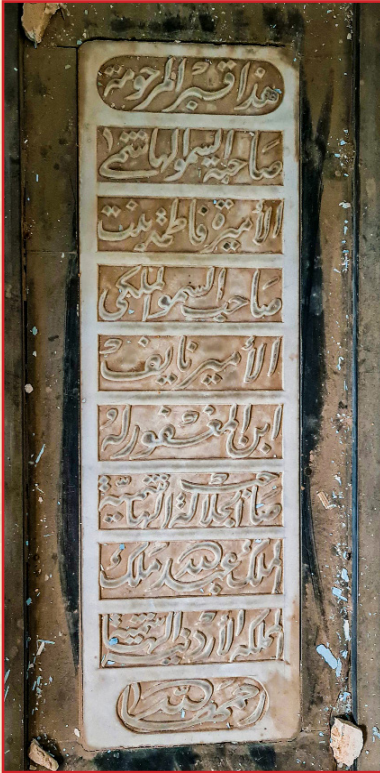 هذا قبر المرحومة
صاحبة السمو الهاشمي
الأميرة فاطمة بنت
صاحب السمو الملكي
الأمير نايف
ابن المغفور له
صاحب الجلالة الهاشمية
الملك عبد الله ملك
المملكة الأردنية الهاشمية
رحمها الله